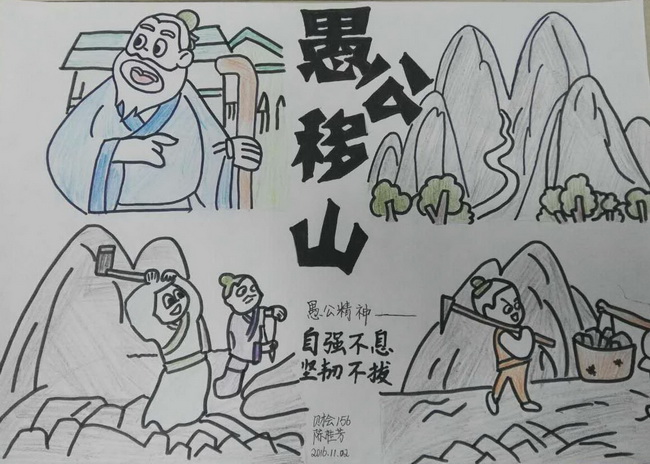 愚公移山
愚公精神——
自强不息
坚韧不拔
财会156
陈雅芳
2016.11.02